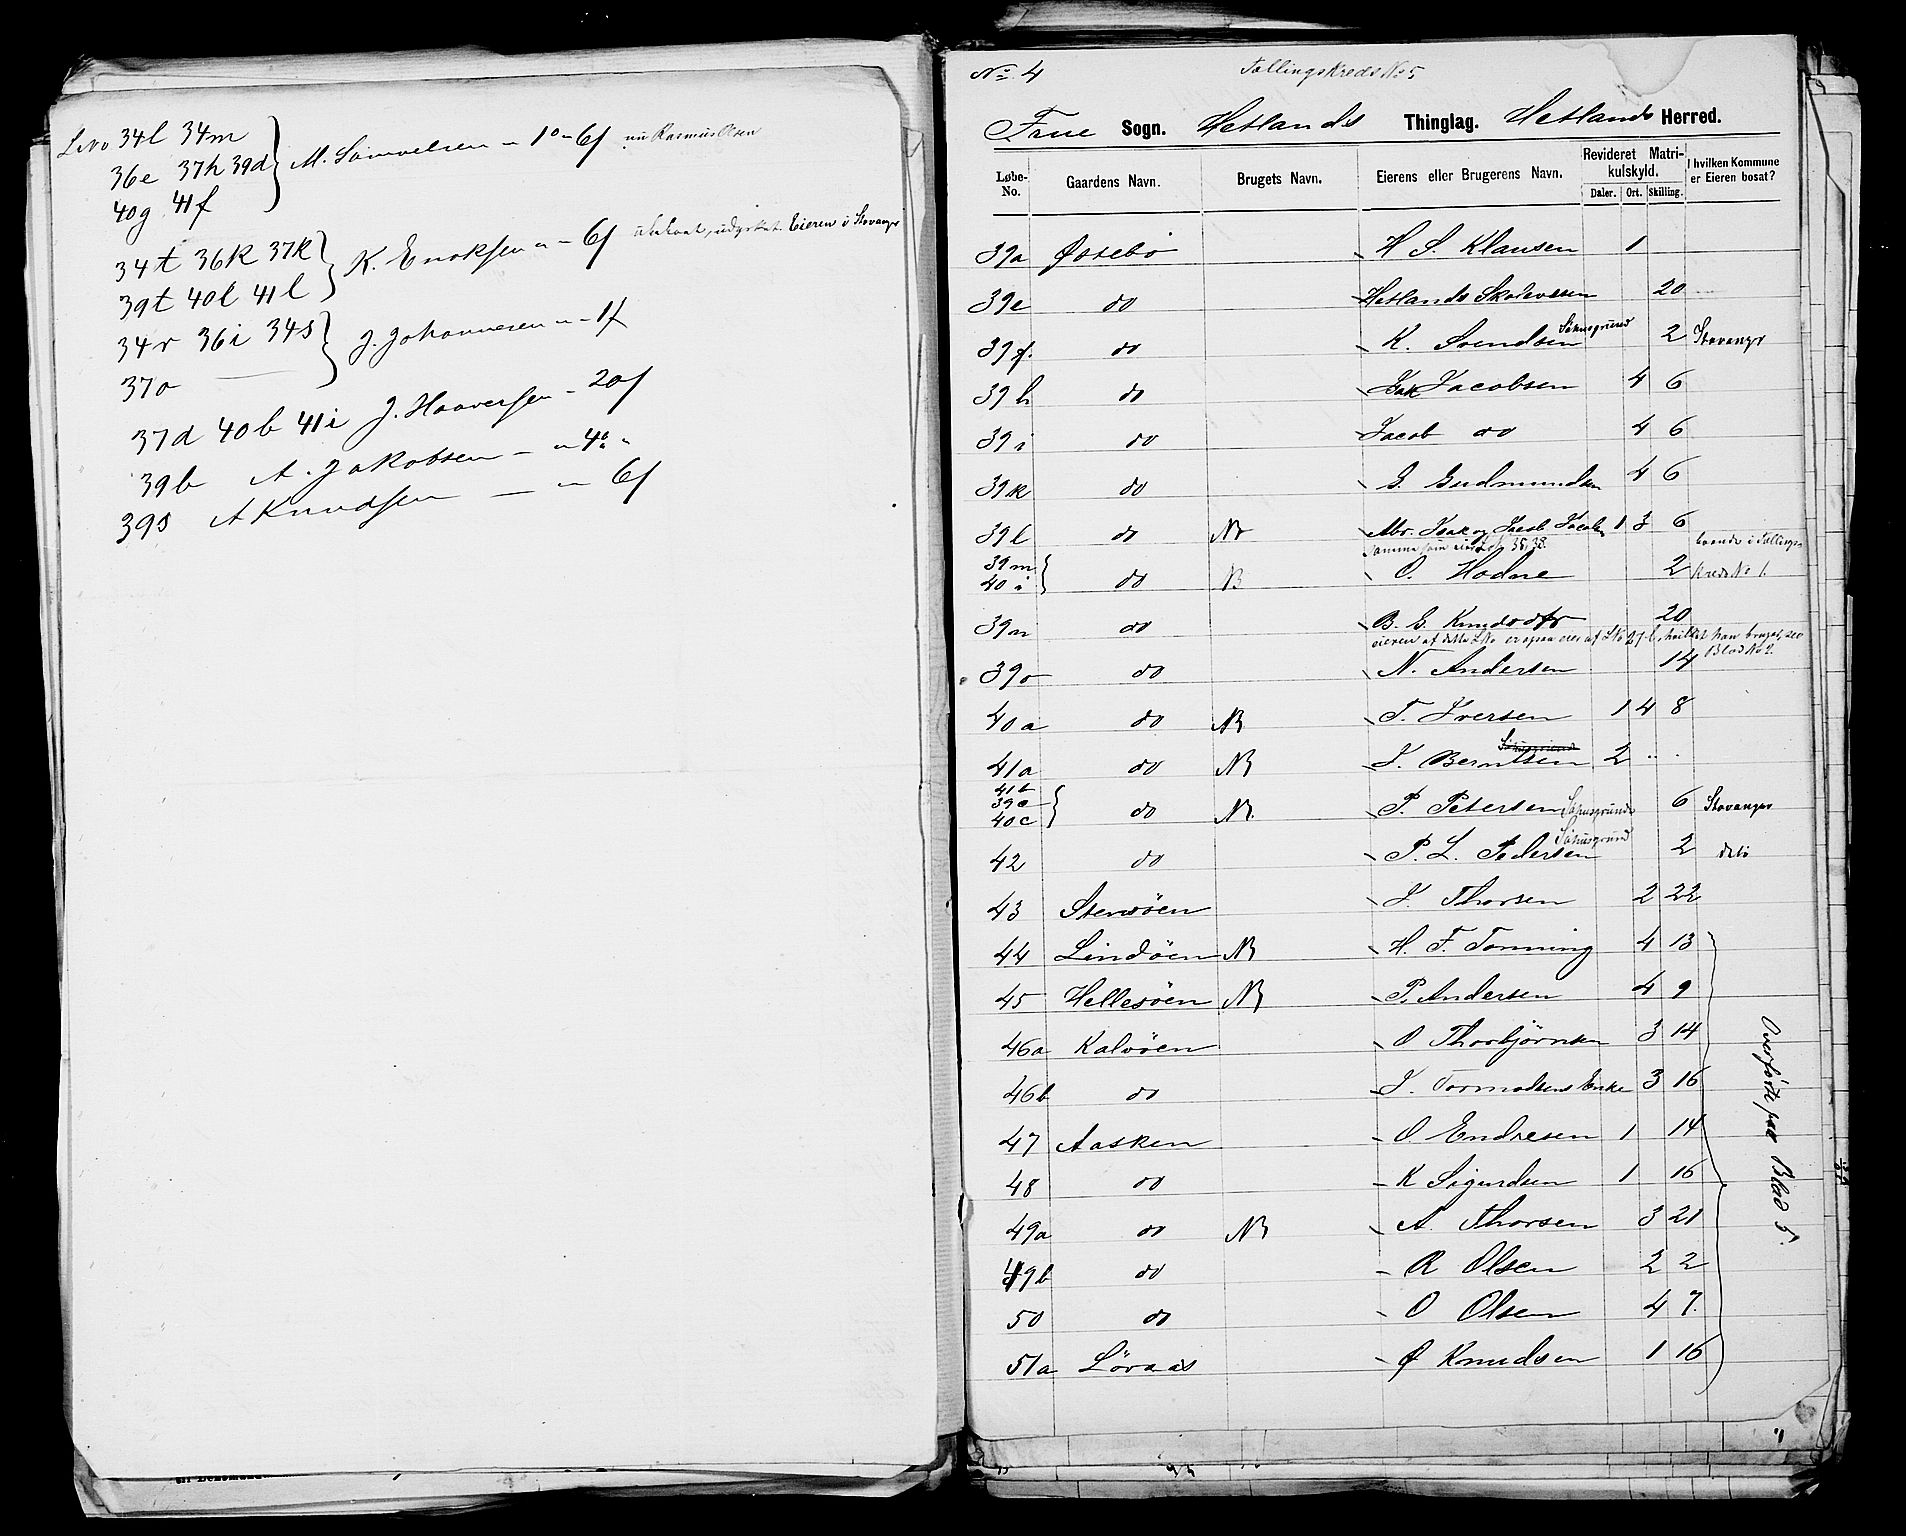 LNo 34l 34m
36e 37h 39d } M. Samuelsen - 1 o - 6 f nu Rasmus Olsen
40g 41f
34t 36k 37k } K. Enoksen " - 6 f ubeboet, udyrket. Eieren i Stavanger
39t 40l 41l
34r 36i 34s } J. Johannesen " - 1 f
37o
37d 40b 41i J. Haaversen - 20 f
39b A. Jakobsen - " 4 o "
39s A Knudsen - " 6 f
No 4 Tællingskreds No 5
Frue Sogn. Hetlands Thinglag. Hetlands Herred.
Løbe-No. Gaardens Navn. Brugets Navn. Eierens eller Brugerens Navn. Revideret Matrikulskyld. Daler. Ort. Skilling. I hvilken Kommune er Eieren bosat?
39a Østebø H S. Klausen 1
39e do Hetlands Skolevæsen 20
39f do K. Svendsen Søhusgrund 2 Stavanger
39h do Isak Jacobsen 4 6
39i do Jacob do 4 6
39k do G. Gudmundsen 4 6
39l do Nr Abr. Isak og Jacob Jacobsen 1 3 6
Samme som eier 35, 38.
39m 40i } do N O. Hodne 2 boende i Tællingskreds No 1.
39n do B. G. Knudsdtr 20
eieren af dette LNo er ogsaa eier af LNo 27 b, hvilket han bruger, see Blad No 2.
39o do N. Andersen 14
40a do N T. Iversen 1 4 8
41a do N J. Berntsen Søhusgrund 2 " "
41b 39c 40c } do N. P. Petersen Søhusgrund 6 Stavanger
42 do P. L. Pedersen Søhusgrund 2 dito
43 Stensöen J. Thorsen 2 22
44 Lindöen N H. F. Tonning 4 13
45 Hellesöen N P. Andersen 4 9
46a Kalvöen O Thorbjörnsen 3 14
46b do J. Tormodsens Enke 3 16
47 Aasken O Endresen 1 14
48 do K Sigurdsen 1 16
49a do N A. Thorsen 3 21
49b do R Olsen 2 2
50 do O Olsen 4 7.
51a Löraas Ø Knudsen 1 16
Overførte paa Blad 5.